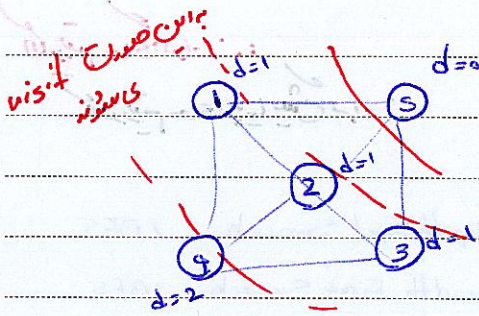 به این صورت visit
می شوند
d=1
1
d=0
s
2
d=1
3
d=1
4
d=2